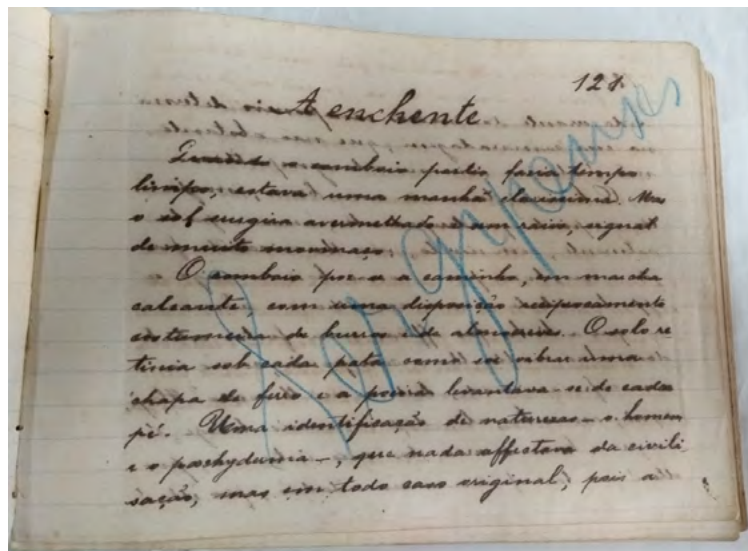 128.
A enchente
Quando o comboio partio fazia tempo
limpo, estava uma manhã clarissima. Mas
o sol surgira avermelhado e sem raios, signal
de muito mormaço.
O comboio poz-se a caminho, em marcha
calcante, com uma disposição reciprocamente
costumeira de burros e de almocreves. O solo re
tinia sob cada pata como se vibra uma
chapa de ferro e a poeira levantava-se de cada
pé. Uma identificação de naturezas - o homem
e o pachyderma -, que nada affectava da civili
sação, mas em todo caso original, pois a